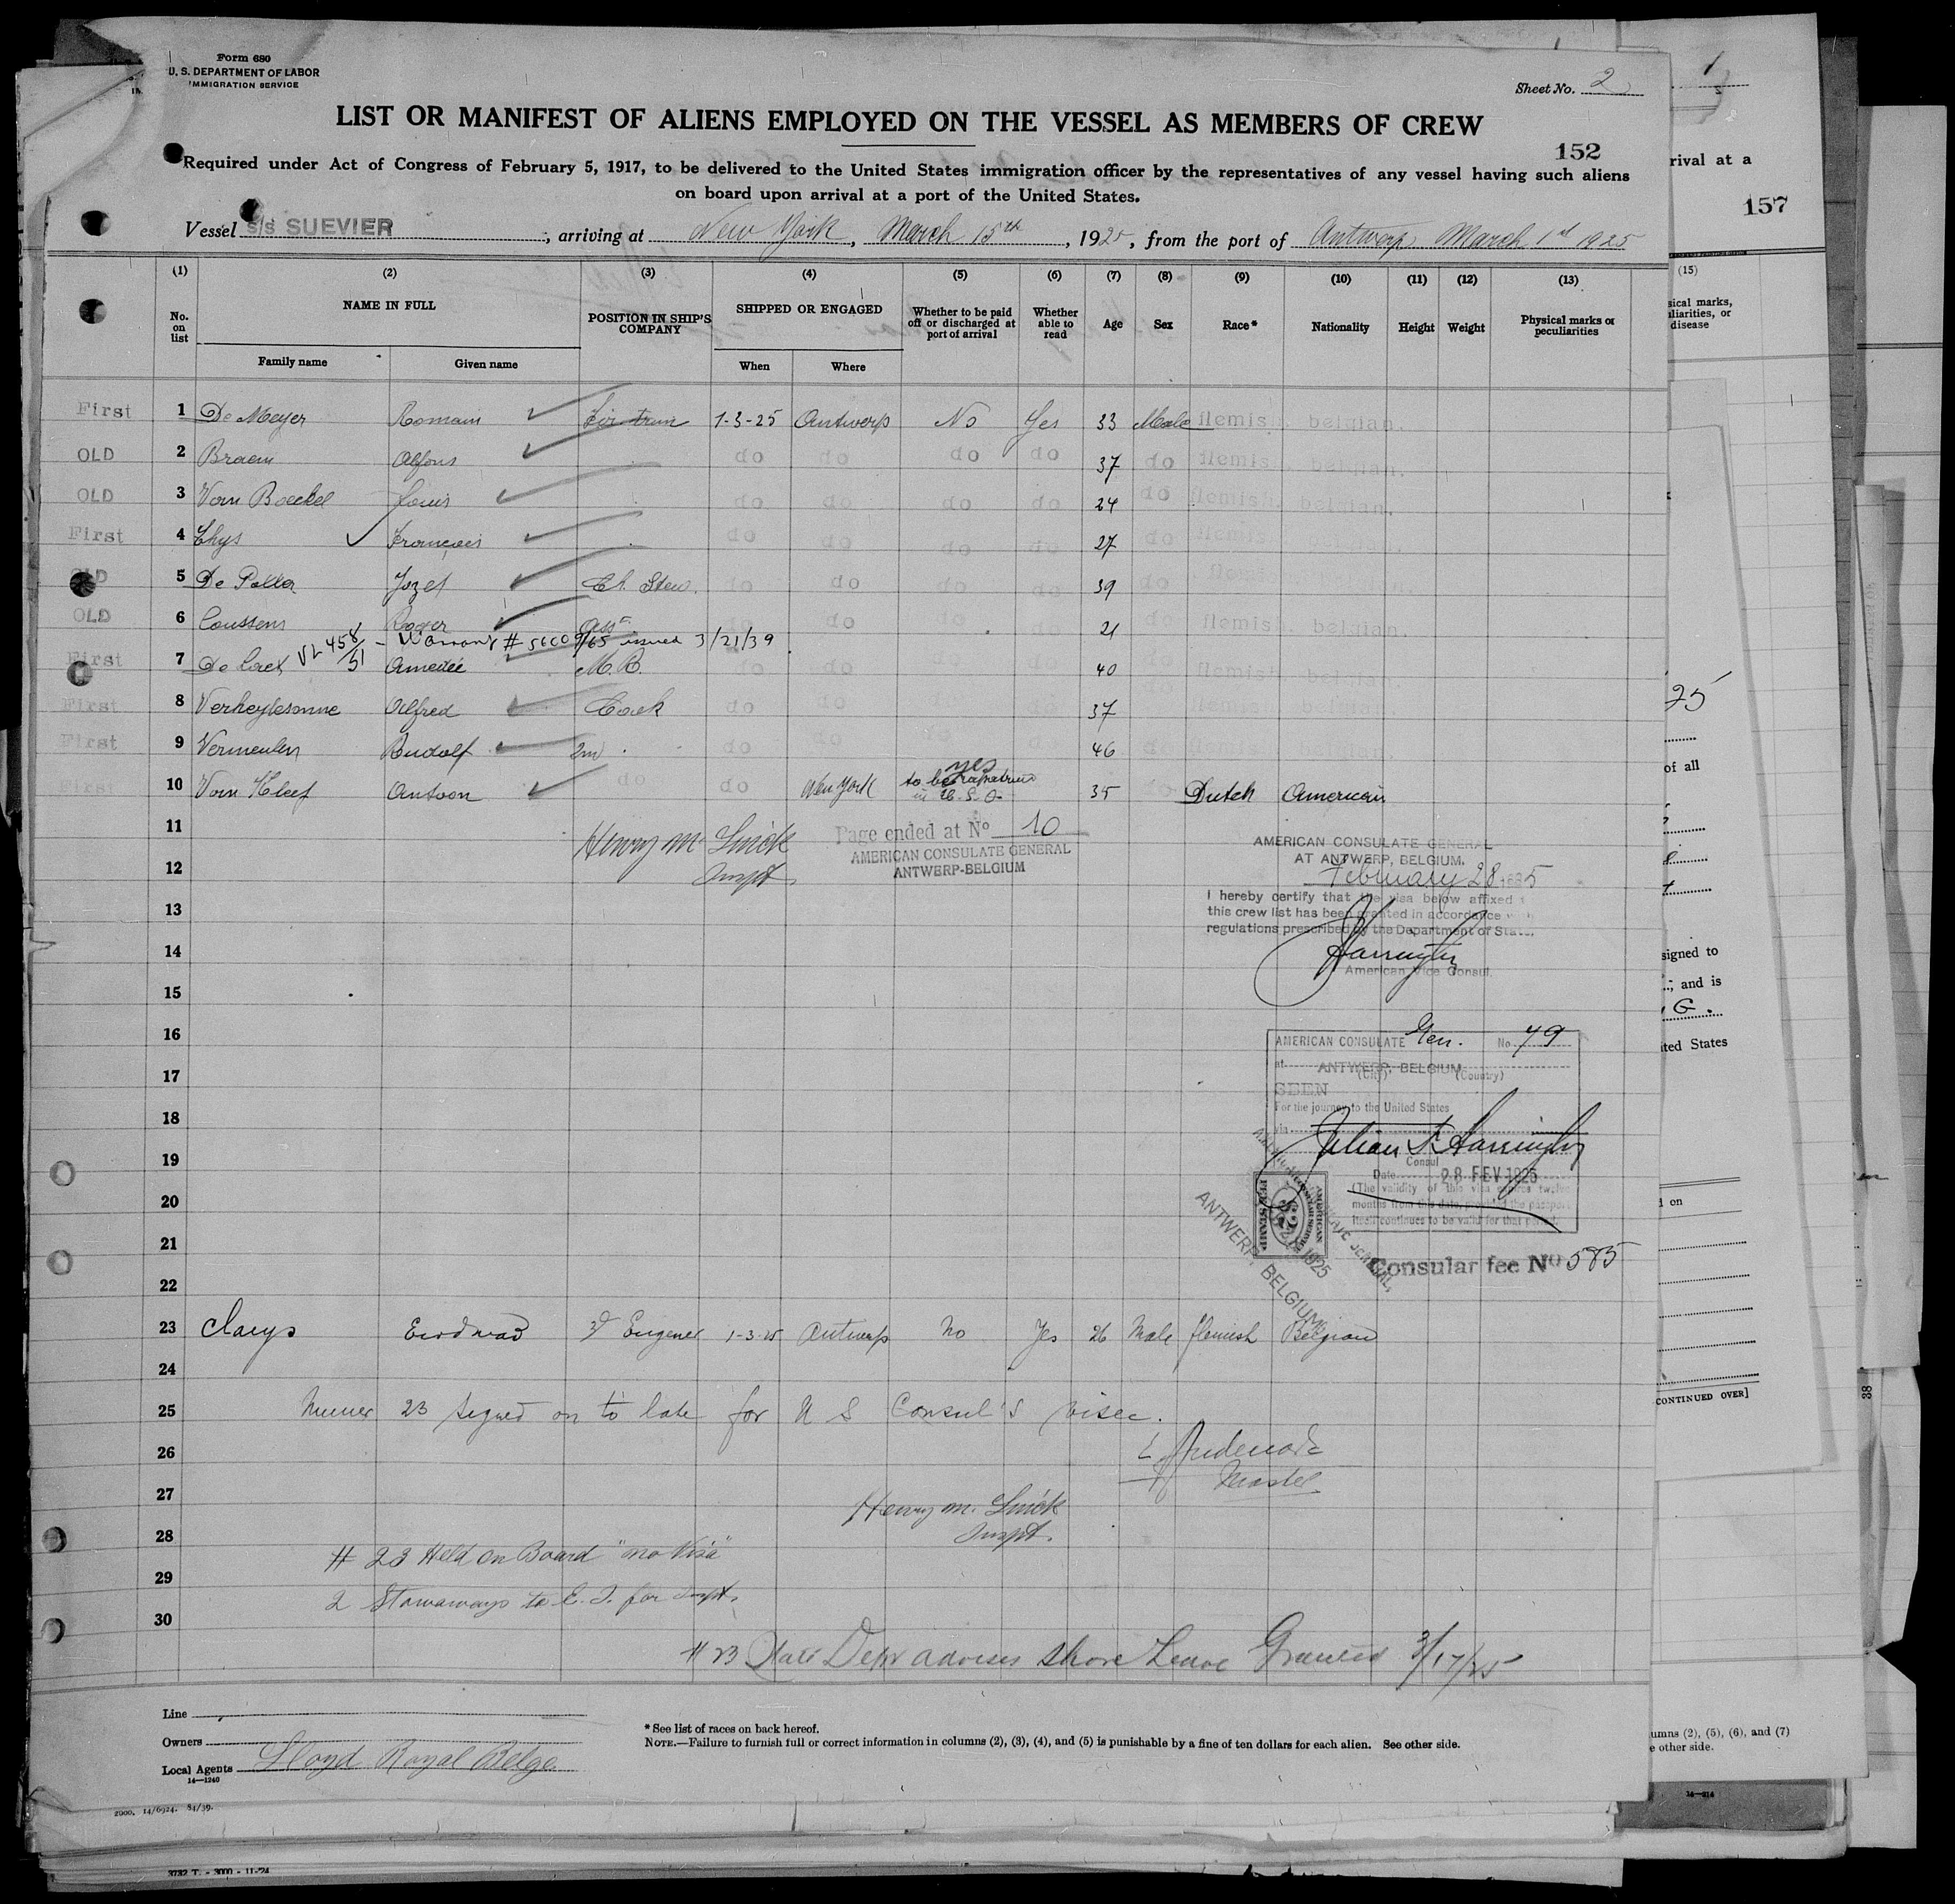 Form 680
U. S. DEPARTMENT OF LABOR
IMMIGRATION SERVICE
Sheet No. 2
LIST OR MANIFEST OF ALIENS EMPLOYED ON THE VESSEL AS MEMBERS OF CREW
152
Required under Act of Congress of February 5, 1917, to be delivered to the United States immigration officer by the representatives of any vessel having such aliens
on board upon arrival at a port of the United States.
Vessel s/s SUEVIER, arriving at New York, March 15th, 1925, from the port of Antwerp March 1st 1925
(1) (2) (3) (4) (5) (6) (7) (8) (9) (10) (11) (12) (13)
No. on list NAME IN FULL POSITION IN SHIP'S COMPANY SHIPPED OR ENGAGED Whether to be paid off or discharged at port of arrival Whether able to read Age Sex Race* Nationality Height Weight Physical marks or peculiarities
Family name Given name When Where
First 1 De Meyer Romain 1-3-25 Antwerp No Yes 33 Male flemish belgian.
OLD 2 Braem Alfons do do do do 37 do flemish belgian.
OLD 3 Van Boeckel Louis do do do do 24 do flemish belgian.
First 4 Thys François do do do do 27 do flemish
OLD 5 De Potter Jozef Ch. Stew. do do do do 39 do
OLD 6 Coussens Roger Asst do 21 do flemish belgian.
VL 458/51 - Warrant # 56009/65 issued 3/21/39
First 7 Amedée M. R. do do 40 do flemish belgian.
First 8 Alfred Cook do do 37 do
First 9 Vermeulen Rudolf 2nd do do do 46 do flemish belgian
First 10 Van Kleef Antoon do do New York yes 35 do Dutch American
to be
in U.S.A.
11
Henry M. Smick
Page ended at No 10
AMERICAN CONSULATE GENERAL
ANTWERP-BELGIUM
12
Inspt.
AMERICAN CONSULATE GENERAL
AT ANTWERP, BELGIUM.
February 28 1925
I hereby certify that the visa below affixed
13
this crew list has been granted in accordance
regulations prescribed by the Department of State.
14
Harrington
American Vice Consul.
15
16
AMERICAN CONSULATE Gen. No. 79
at ANTWERP, BELGIUM
(City) (Country)
17
SEEN
For the journey to the United States
18
via
Julian F. Harrington
19
Consul
Date 28 FEV 1925
(The validity of this visa expires twelve
20
months from this date, provided the passport
itself continues to be valid for that period.
AMERICAN CONSULAR SERVICE
FEE STAMP
ANTWERP, BELGIUM
21
Consular fee No 585
22
23 Claeys 3d Engeneer 1-3-25 Antwerp No Yes 26 Male flemish Belgian
24
25 23 signed on to late for U S Consul's visee.
26
27 Master
Henry M. Smick
28 Inspt.
# 23 Held on Board "no Visa"
29
2 Stowaways to E. I. for Inspt.
30
# 23 State Dept advises Shore Leave Granted 3/17/25
Line
Owners
Local Agents Lloyd Royal Belge
14—1240
* See list of races on back hereof.
NOTE.—Failure to furnish full or correct information in columns (2), (3), (4), and (5) is punishable by a fine of ten dollars for each alien. See other side.
2000. 14/6924. 34/39.
3732 T. - 3000 - 11-24
1
rival at a
157
(15)
sical marks,
liarities, or
disease
25
of all
signed to
; and is
G.
ited States
d on
CONTINUED OVER]
38
umns (2), (5), (6), and (7)
e other side.
14—214